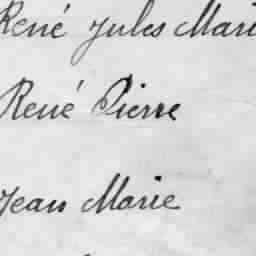 René Jules Mari
René Pierre
Jean Marie